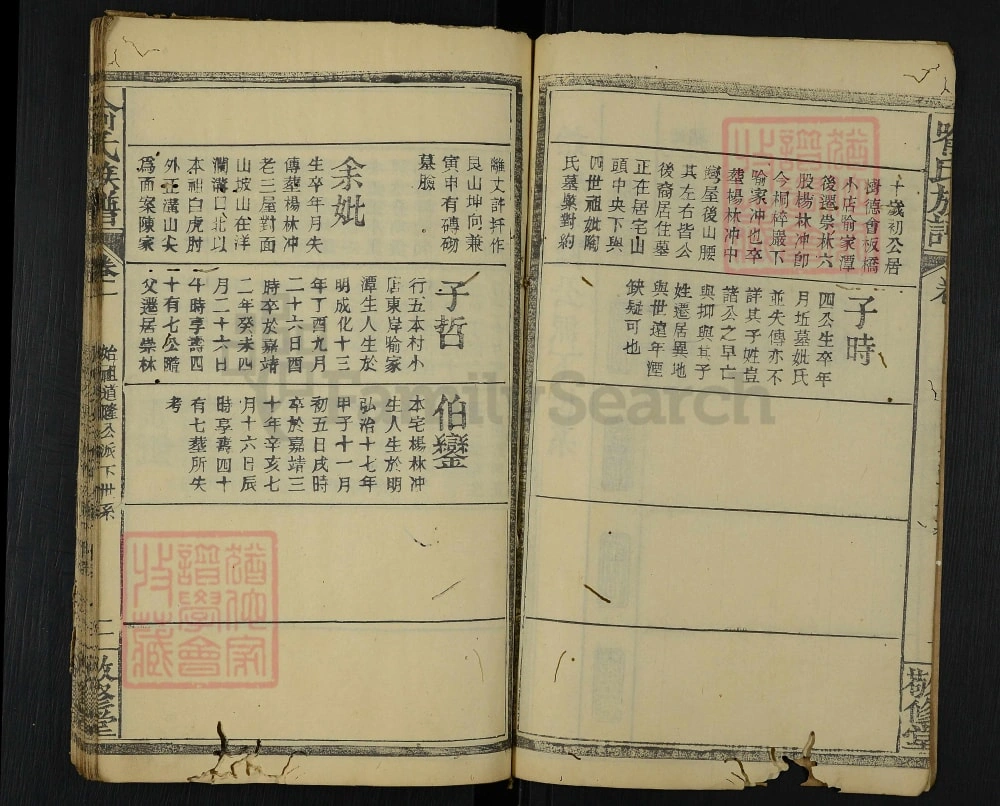 喻氏族譜
卷
敬修堂
十歲初公居
樹德會板橋
小店喻家潭
後遷崇林六
股楊林冲卽
今桐梓嚴下
喻家冲也卒
塟楊林冲中
灣屋後山腰
其左右皆公
後裔居住墓
正在居宅山
頭中央下與
四世祖妣陶
氏墓衆對約
子時
四公生卒年
月坵墓妣氏
並失傳亦不
詳其子姓豈
諸公之早亡
與抑與其子
姓遷居異地
與世遠年湮
缺疑可也
離丈許扦作
艮山坤向兼
寅申有磚砌
墓臉
余妣
生卒年月失
傳塟楊林冲
老三屋對面
山坡山在洋
瀾溝口北以
本祖白虎肘
外正溝山尖
爲面案陳家
子哲
行五本村小
店東岸喻家
潭生人生於
明成化十三
年丁酉九月
二十六日酉
時卒於嘉靖
二年癸未四
月二十六日
午時享壽四
十有七公隨
父遷居崇林
伯鑾
本宅楊林冲
生人生於明
弘治十七年
甲子十一月
初五日戌時
卒於嘉靖三
十年辛亥七
月十六日辰
時享壽四十
有七塟所失
考
喻氏族譜
卷一
始祖道隆公派下世系
二
敬修堂
FamilySearch